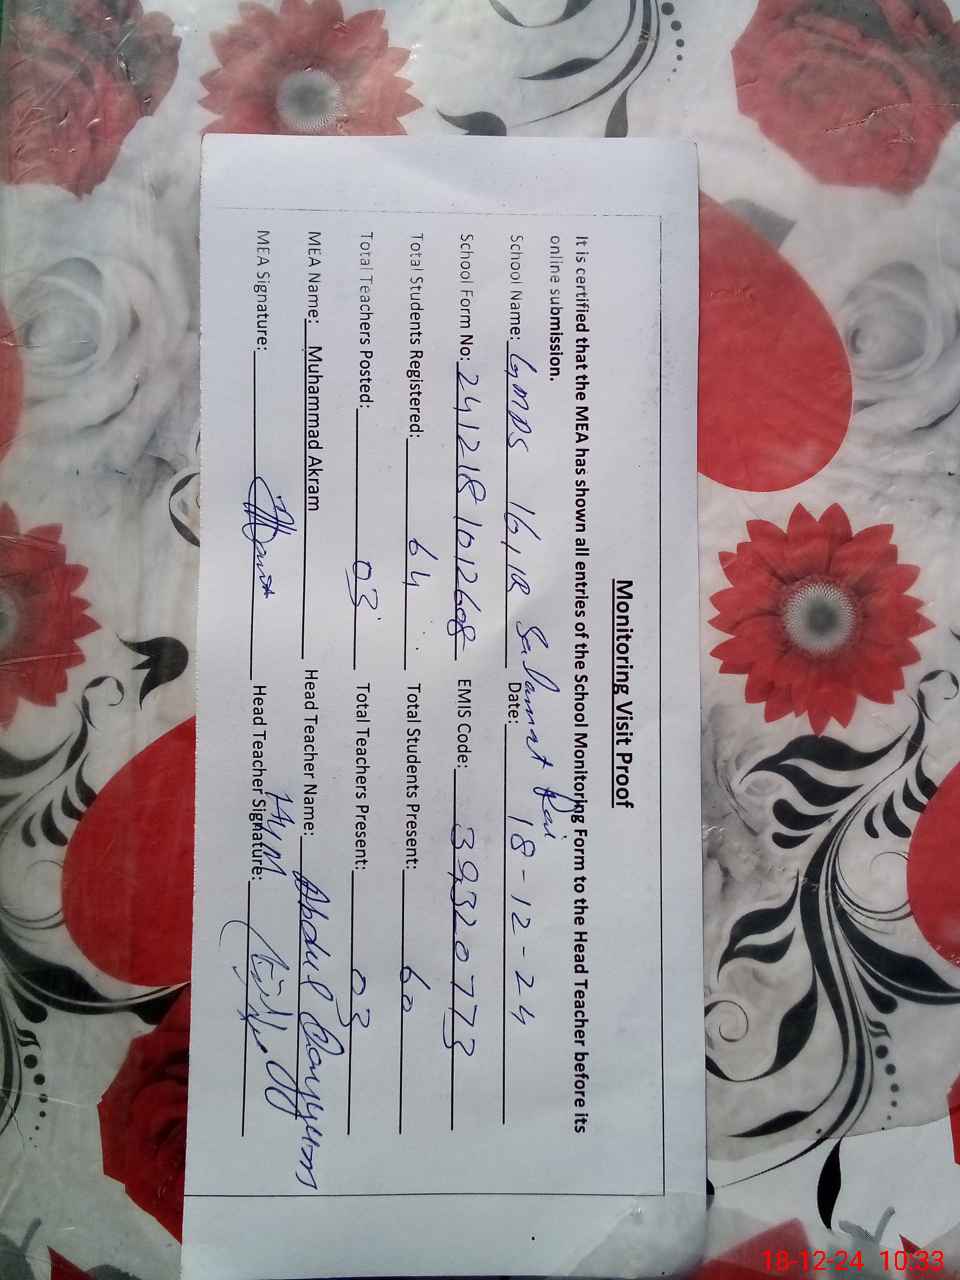 Monitoring Visit Proof
It is certified that the MEA has shown all entries of the School Monitoring Form to the Head Teacher before its
online submission.
School Name: GMPS 16/1R Salamat Rai Date: 18-12-24
School Form No: 2412181012608 EMIS Code: 39320773
Total Students Registered: 64 Total Students Present: 60
Total Teachers Posted: 03 Total Teachers Present: 03
MEA Name: Muhammad Akram Head Teacher Name: Abdul Qayyum
MEA Signature: Head Teacher Signature:
18-12-24 10:33